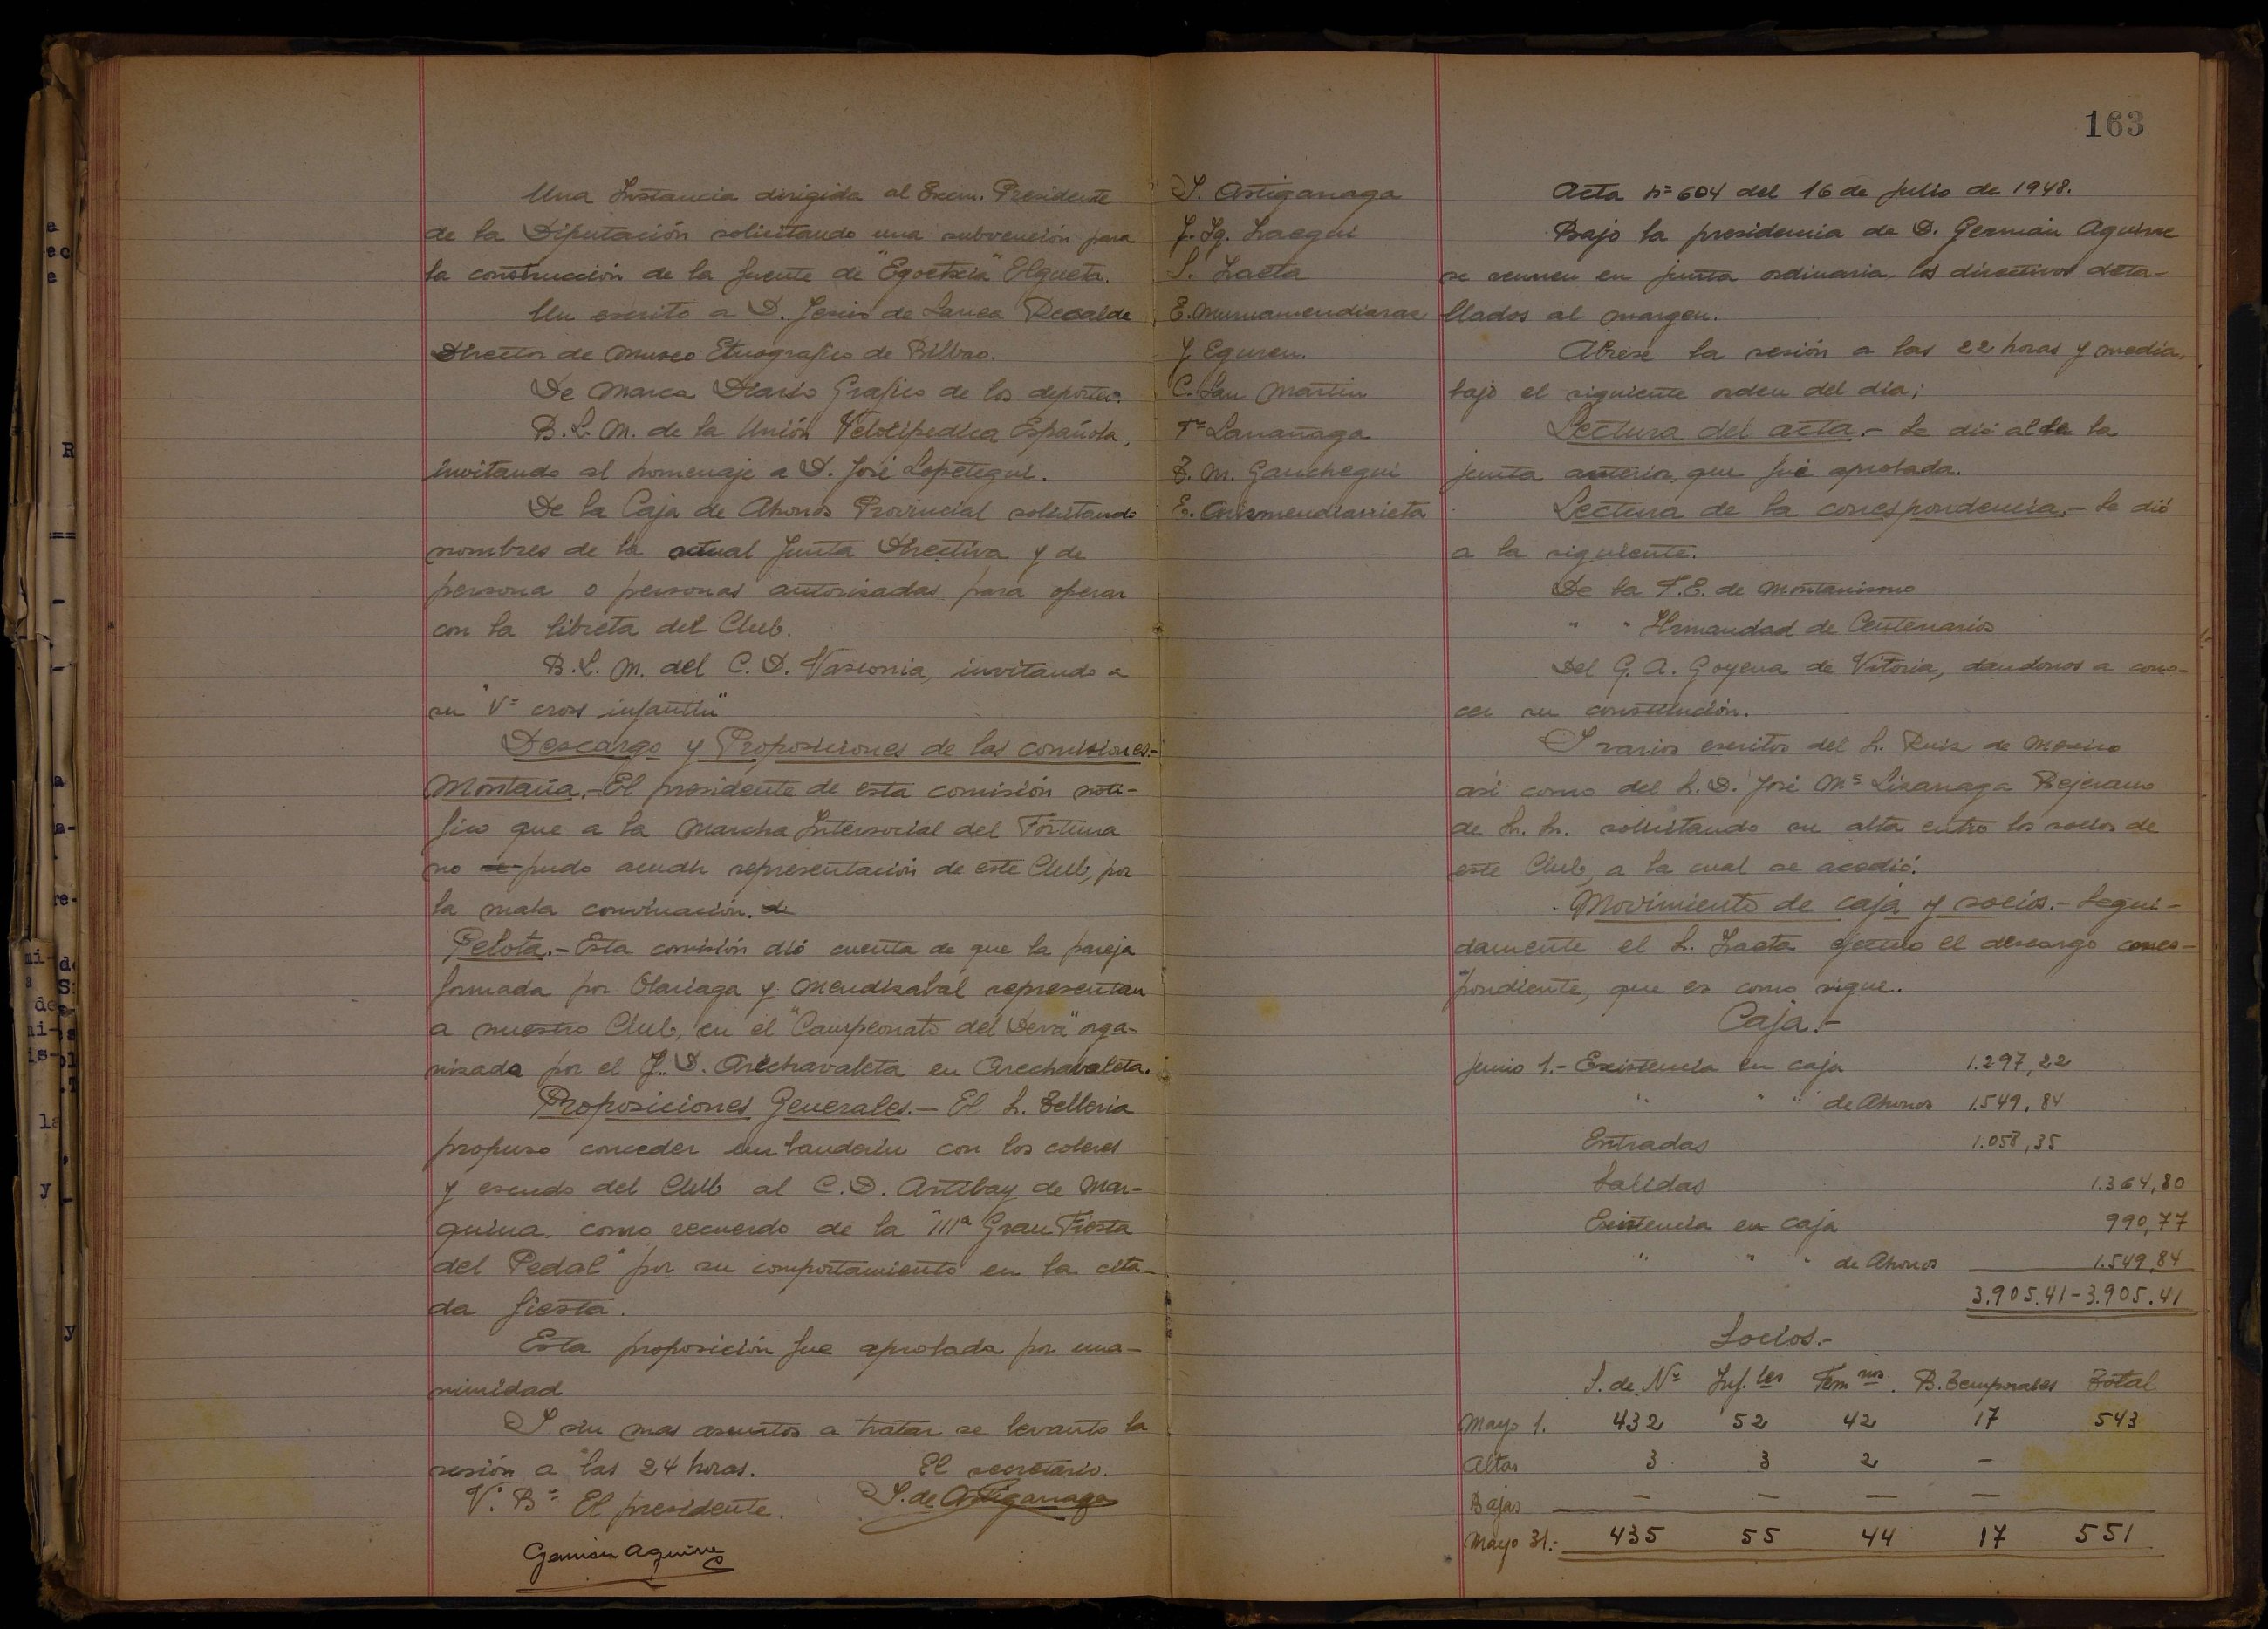 Una Instancia dirigida al Excm. Presidente
de la Diputación solicitando una subvención para
la construcción de la fuente de "Egoetxia" Elgueta.
Un escrito a D. Jesús de Larrea Recalde
Director de Museo Etnografico de Bilbao.
De Marca Diario Grafico de los deportes.
B.L.M. de la Unión Velocipedica Española,
invitando al homenaje a D. José Lopetegui.
De la Caja de Ahorros Provincial solicitando
nombres de la actual Junta Directiva y de
persona o personas autorizadas para operar
con la libreta del Club.
B.L.M. del C.D. Vasconia, invitando a
su "Vº cross infantil"
Descargo y Proposiciones de las comisiones.-
Montaña.- El presidente de esta comisión noti-
fico que a la Marcha Intersocial del Fortuna
no se pudo acudir representación de este Club, por
la mala convinación. de
Pelota.- Esta comisión dió cuenta de que la pareja
formada por Olariaga y Mendizabal representan
a nuestro Club, en el "Campeonato del Deva" orga-
nizada por el J.D. Arechavaleta en Arechabaleta.
Proposiciones Generales.- El S. Telleria
propuso conceder un banderin con los colores
y escudo del Club al C.D. Artibay de Mar-
quina, como recuerdo de la "IIIª Gran Fiesta
del Pedal" por su comportamiento en la cita-
da fiesta.
Esta proposición fue aprobada por una-
nimidad
I sin mas asuntos a tratar se levanto la
sesión a las 24 horas. El secretario.
V.º Bº El presidente. I. de Astiganaga
German Aguirre
163
I. Astiganaga
J. Ig. Loegui
S. Zaeta
E. Muruamendiaraz
J. Eguren.
C. San Martin
Fº Larrañaga
T. M. Ganchegui
E. Arizmendiarrieta
Acta nº 604 del 16 de Julio de 1948.
Bajo la presidencia de D. Germán Aguirre
se reunen en junta ordinaria los directivos deta-
llados al margen.
Abrese la sesión a las 22 horas y media,
bajo el siguiente orden del día;
Lectura del acta.- Se dió al de la
junta anterior, que fué aprobada.
Lectura de la correspondencia.- Se dió
a la siguiente.
De la F.E. de Montanismo
" " Hermandad de Centenarios
Del G.A. Goyena de Vitoria, dandonos a cono-
cer su constitución.
I varios escritos del S. Ruiz de Mexico
así como del S.D. José Mª Lizarraga Bejerano
de S.S. solicitando su alta entre los socios de
este Club, a la cual se acedió.
Movimiento de caja y socios.- Segui-
damente el S. Zaeta ejecuto el descargo corres-
pondiente, que es como sigue.
Caja.-
Junio 1.- Existencia en caja 1.297,22
" " " de Ahorros 1.549,84
Entradas 1.058,35
Salidas 1.364,80
Existencia en caja 990,77
" " " de Ahorros 1.549,84
3.905.41 - 3.905.41
Socios.-
S. de Nº Inf.les Fem nos. B. Temporales Total
Mayo 1. 432 52 42 17 543
Altas 3 3 2 -
Bajas — — — —
Mayo 31.- 435 55 44 17 551